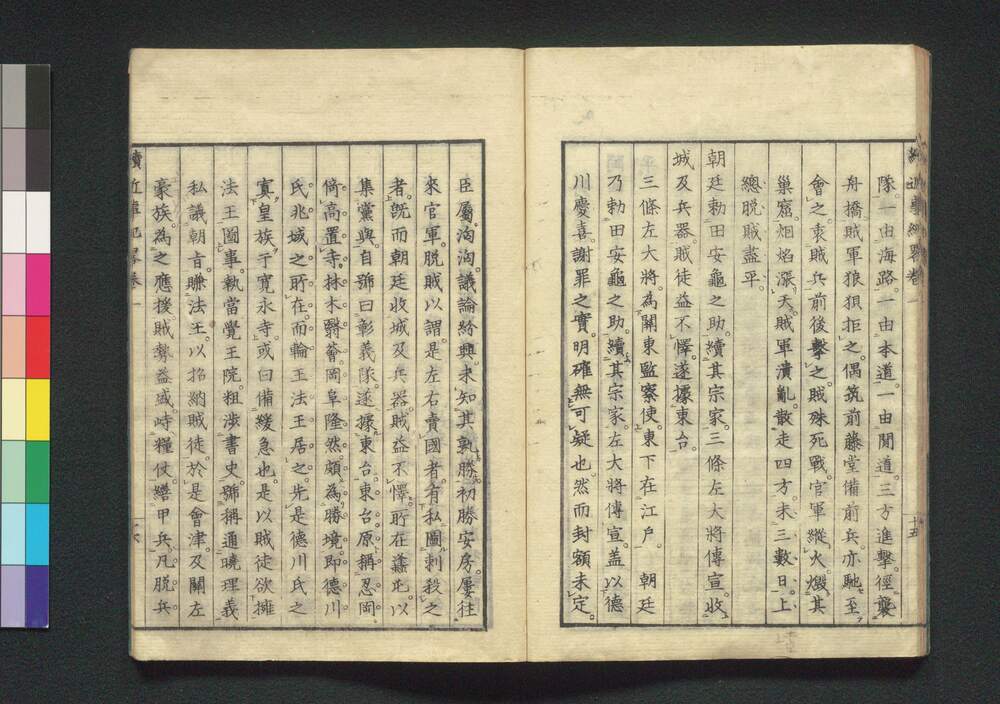 隊。一由海路。一由本道。一由間道。三方進擊。徑襲
舟橋。賊軍狼狽拒之。偶筑前藤堂備前兵。亦馳至
會之。衷賊兵前後擊之。賊殊死戰。官軍縱火。燬其
巢窟。烟焰漲天。賊軍潰亂。散走四方。未三數日。上
總脫賊盡平。
朝廷勅田安龜之助。續其宗家。三條左大將傳宣。收
城及兵器。賊徒益不懌。遂據東台。
三條左大將。為關東監察使。東下在江戶。 朝廷
乃勅田安龜之助。續其宗家。左大將傳宣。盖以德
川慶喜。謝罪之實。明確無可疑也。然而封額未定。
十五
臣屬洶洶。議論紛興。未知其孰勝。初勝安房。屢往
來官軍。脫賊以謂。是左右賣國者。有私圖刺殺之
者。既而朝廷收城及兵器。賊益不懌。所在蠭屯。以
集黨與。自號曰彰義隊。遂據東台。東台原稱忍岡。
倚高置寺。林木翳薈。岡阜隆然。頗為勝境。即德川
氏兆域之所在。而輪王法王居之。先是德川氏之
寘皇族于寬永寺。或曰備緩急也。是以賊徒欲擁
法王圖事。執當覺王院。粗涉書史。號稱通曉理義
私議朝旨。賺法王。以招納賊徒。於是會津。及關左
豪族。為之應援。賊勢益盛。峙糧仗。繕甲兵。凡脫兵